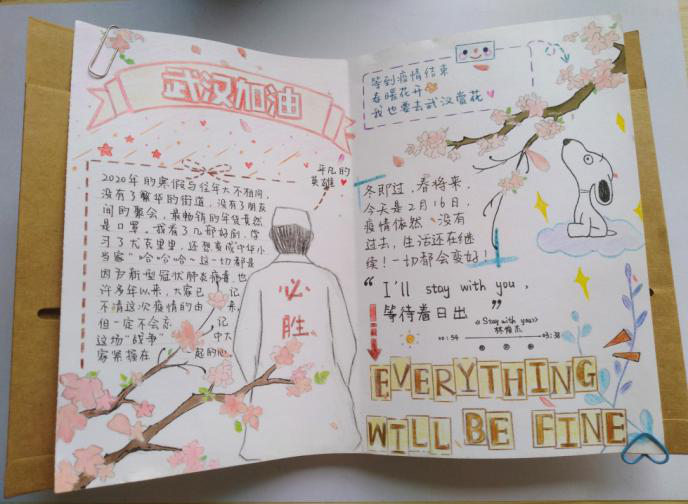 武汉加油
平凡的
英雄
2020年的寒假与往年大不相同,
没有了繁华的街道,没有了朋友
间的聚会,最畅销的年货竟然
是口罩。我看了几部好剧,学
习了尤克里里,还想变成中华小
当家"哈哈哈~这一切都是
因为新型冠状肺炎病毒,也
许多年以来,大家已 记
不清这次疫情的由 来,
但一定不会忘 记
这场"战争" 中大
家紧挨在 一起的心
必
胜
等到疫情结束
春暖花开
我也要去武汉赏花
冬即过,春将来,
今天是2月16日,
疫情依然 没有
过去,生活还在继
续!一切都会变好!
"I'll stay with you,
等待着日出"
《Stay with you》
林俊杰
00:54 03:38
EVERYTHING
WILL BE FINE